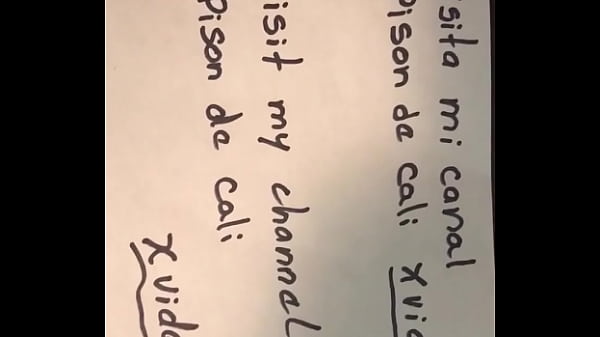 sita mi canal
pison de cali xvi
isit my channel
pison de cali
xvid